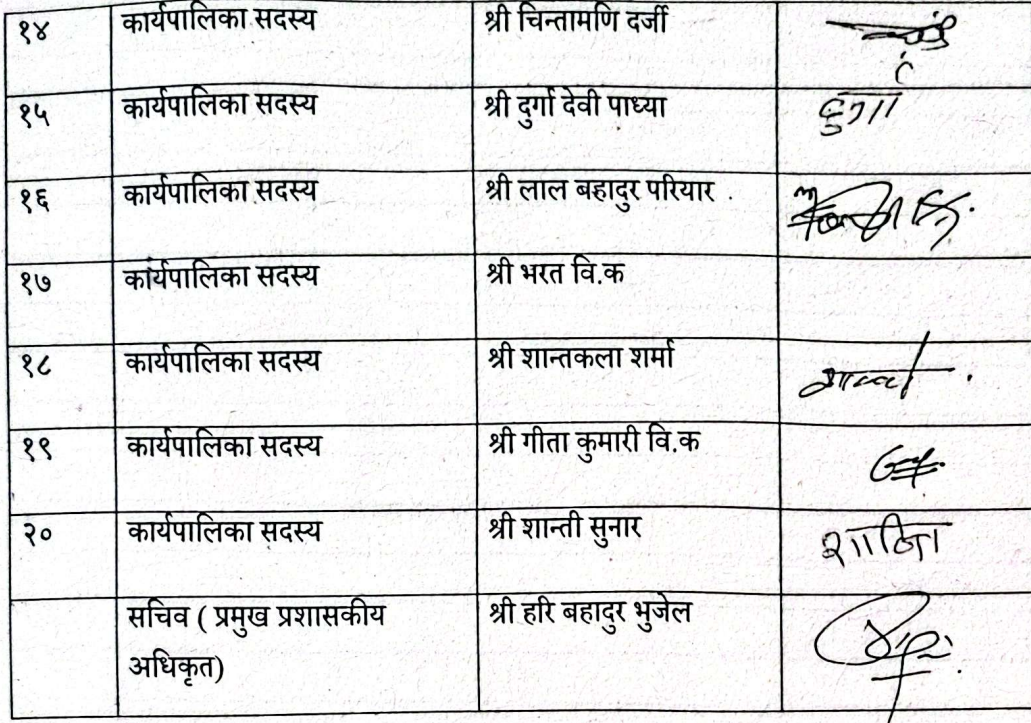 १४ कार्यपालिका सदस्य श्री चिन्तामणि दर्जी
१५ कार्यपालिका सदस्य श्री दुर्गा देवी पाध्या दुर्गा
१६ कार्यपालिका सदस्य श्री लाल बहादुर परियार
१७ कार्यपालिका सदस्य श्री भरत वि.क
१८ कार्यपालिका सदस्य श्री शान्तकला शर्मा
१९ कार्यपालिका सदस्य श्री गीता कुमारी वि.क
२० कार्यपालिका सदस्य श्री शान्ती सुनार
सचिव ( प्रमुख प्रशासकीय श्री हरि बहादुर भुजेल
अधिकृत)